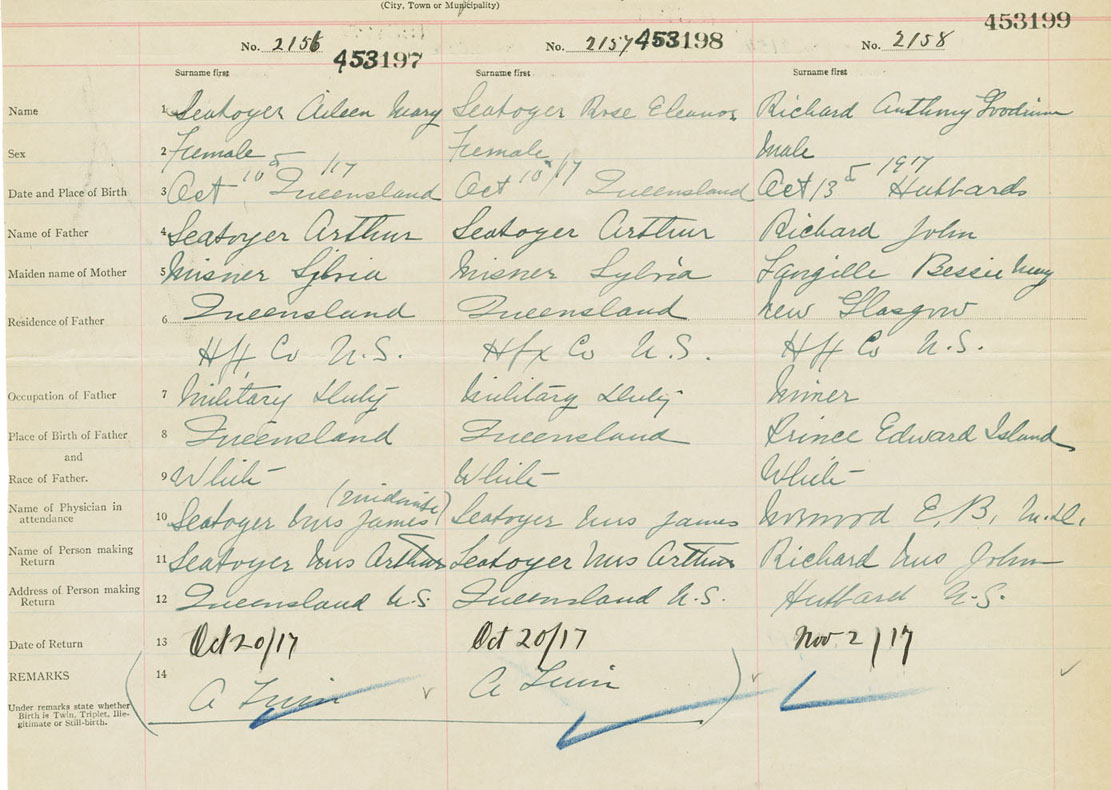 (City, Town or Municipality)
453199
No. 2156 No. 2157 453198 No. 2158
453197
Surname first Surname first Surname first
Name 1 Seaboyer Aileen Mary Seaboyer Rose Eleanor Richard Anthony Goodwin
Sex 2 Female Female Male
Date and Place of Birth 3 Oct 10 5 /17 Queensland Oct 10 5/17 Queensland Oct 13 5 1917 Hubbards
Name of Father 4 Seaboyer Arthur Seaboyer Arthur Richard John
Maiden name of Mother 5 Misner Sylvia Misner Sylvia Langille Bessie May
Residence of Father 6 Queensland Queensland New Glasgow
Hfx Co N.S. Hfx Co N.S. Hfx Co N.S.
Occupation of Father 7 Military Duty Military Duty Miner
Place of Birth of Father 8 Queensland Queensland Prince Edward Island
and
Race of Father. 9 White White White
(midwife)
Name of Physician in attendance 10 Seaboyer Mrs James Seaboyer Mrs James Norwood E. B. M.D.
Name of Person making Return 11 Seaboyer Mrs Arthur Seaboyer Mrs Arthur Richard Mrs John
Address of Person making Return 12 Queensland N.S. Queensland N.S. Hubbard N.S.
Date of Return 13 Oct 20/17 Oct 20/17 Nov 2/17
REMARKS 14 A Twin A Twin
Under remarks state whether
Birth is Twin, Triplet, Ille-
gitimate or Still-birth.